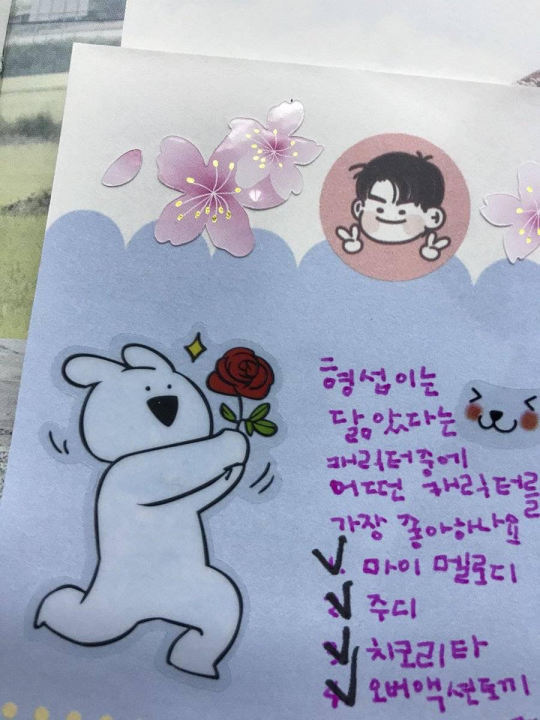 형섭이는
닮았다는
캐릭터중에
어떤 캐릭터를
가장 좋아하나요
1. 마이 멜로디
2. 주디
3. 치코리타
4. 오버액션토끼